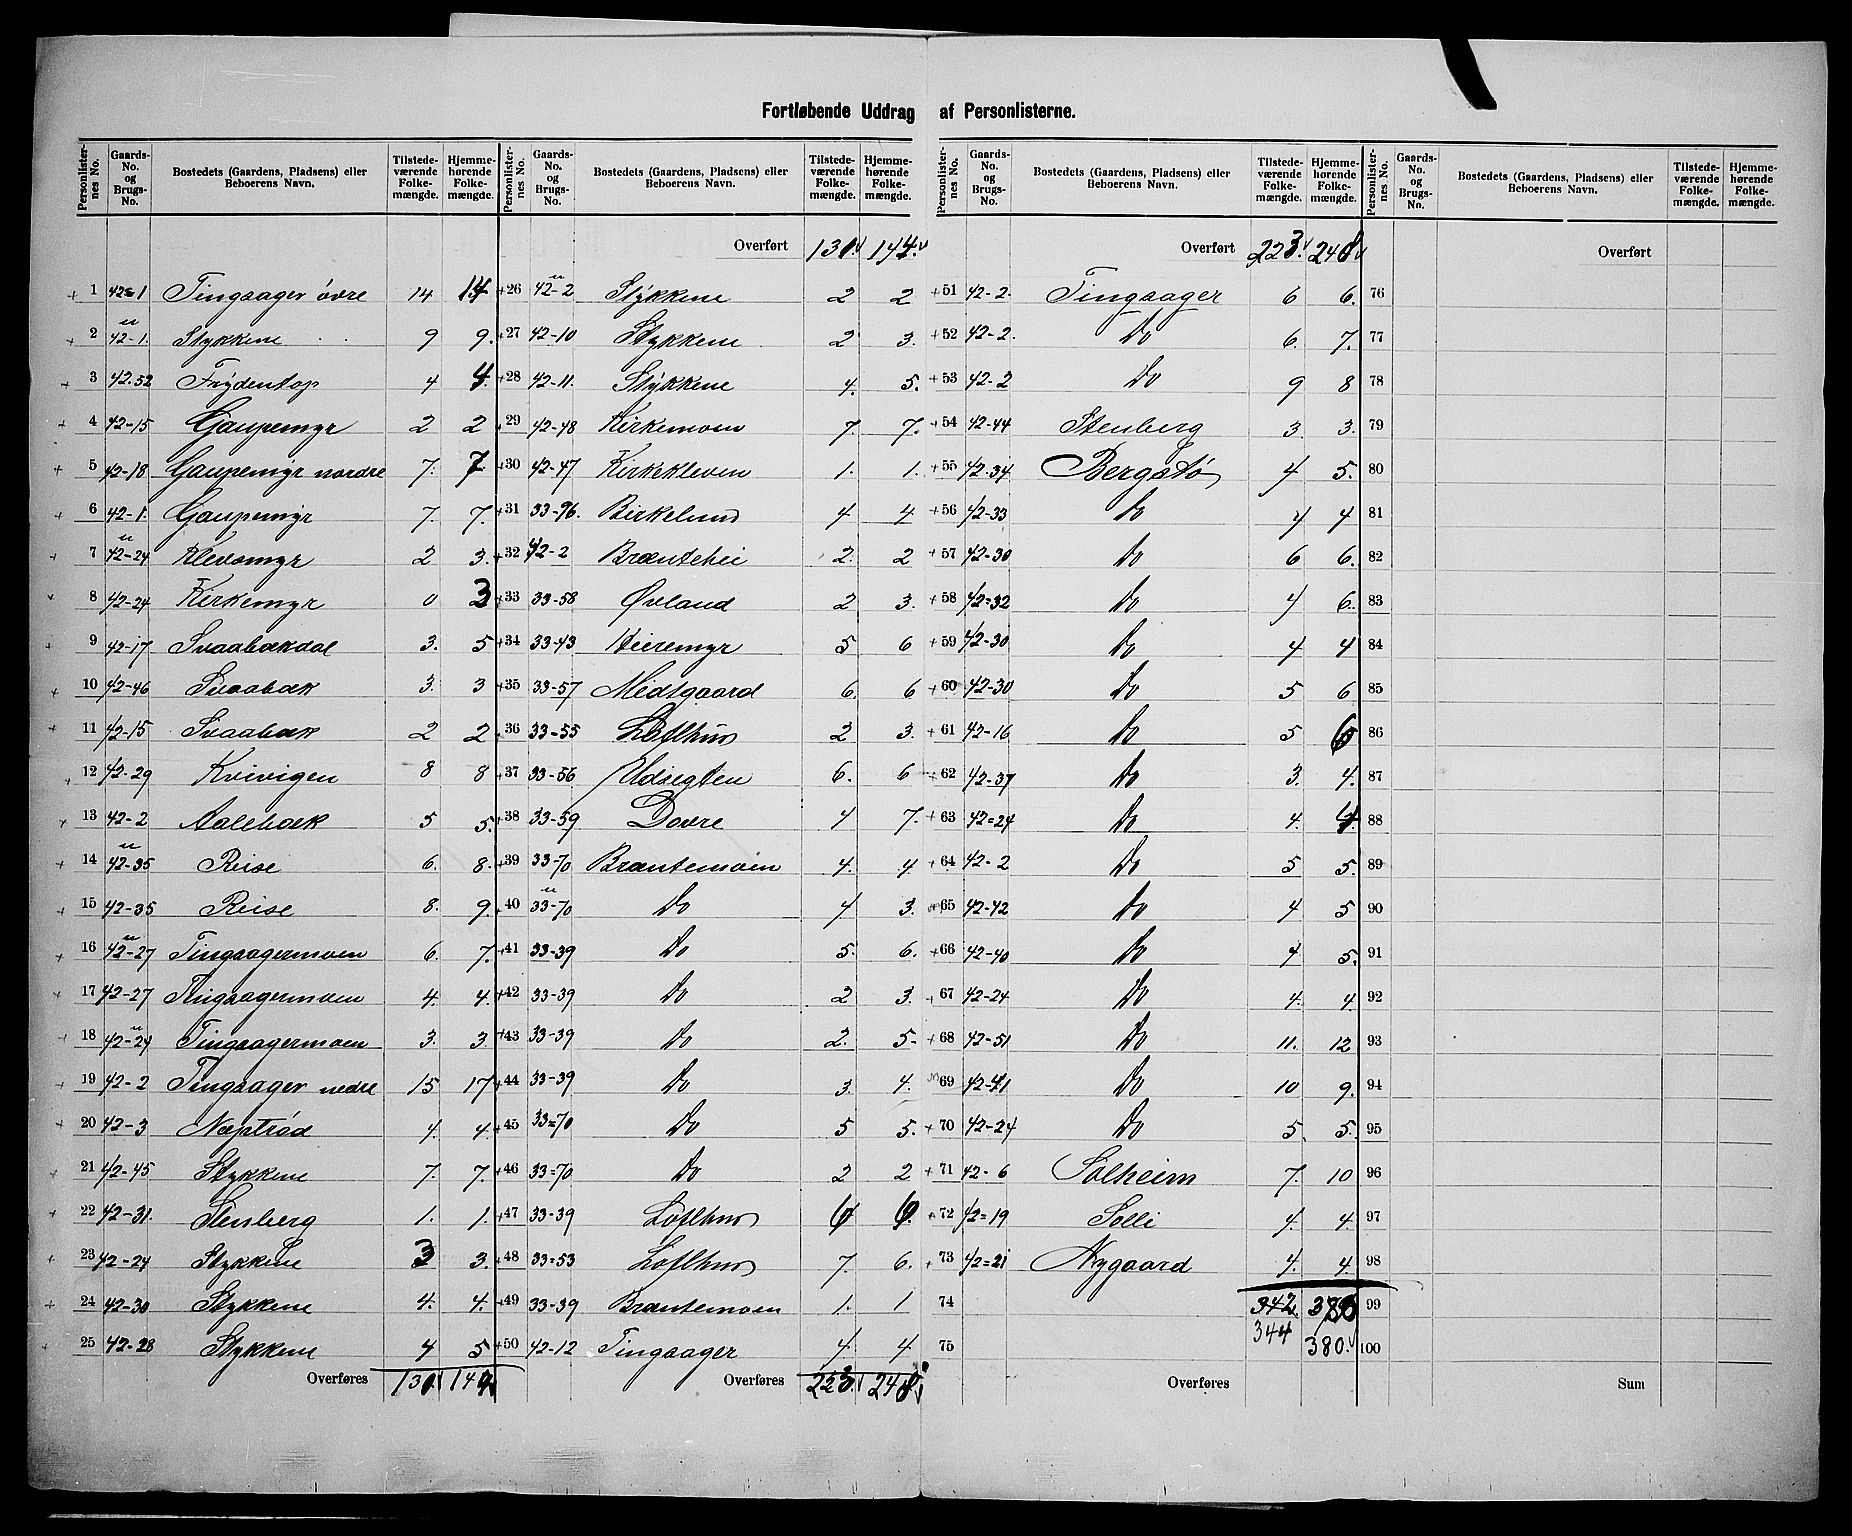 Fortløbende Uddrag af Personlisterne.
Personlister-nes No. | Gaards-No. og Brugs-No. | Bostedets (Gaardens, Pladsens) eller Beboerens Navn. | Tilstede-værende Folke-mængde. | Hjemme-hørende Folke-mængde.
1 42-1 Tingsager övre 14 14
2 42-1. Stykkene 9 9.
3 42.52 Frydentop 4 4.
4 42-15 Gaupemyr 2 2
5 42-18 Gaupemyr nordre 7. 7
6 42-1. Gaupemyr 7. 7.
7 42-24 Klevemyr 2 3.
8 42-24 Kirkemyr 0 3
9 42-17 Svaabækdal 3. 5
10 42-46 Svaabæk 3. 3
11 42-15 Svaabæk 2 2
12 42-29 Kvivigen 8 8
13 42-2 Aalebæk 5 5.
14 42-35 Reise 6. 8.
15 42-35 Reise 8. 9.
16 42-27 Tingsagermoen 6. 7.
17 42-27 Tingsagermoen 4. 4.
18 42-24 Tingsagermoen 3. 3
19 42-2 Tingsager nedre 15 17
20 42-3 Næptröd 4. 4.
21 42-45 Stykkene 7. 7.
22 42-31. Stenberg 1. 1.
23 42-24 Stykkene 3 3.
24 42-30 Stykkene 4. 4.
25 42-28 Stykkene 4 5
Overføres 130. 144
Overført 130. 144.
26 42-2 Stykkene 2 2
27 42-10 Stykkene 2 3.
28 42-11. Stykkene 4. 5.
29 42-48 Kirkemoen 7. 7.
30 42-47 Kirkekleven 1. 1.
31 33-96. Birkelund 4 4
32 42-2 Bræntehei 2. 2
33 33-58 Øvland 2 3.
34 33-43 Heieremyr 5 6
35 33-57 Midtgaard 6. 6
36 33-55 Lofthus 2 3.
37 33-56 Udsigten 6. 6
38 33-59 Dovre 4 7.
39 33-70 Bræntemoen 4. 4
40 33-70 Do 4 3.
41 33-39 Do 5. 6.
42 33-39 Do 2 3.
43 33-39 Do 2. 5.
44 33-39 Do 3. 4.
45 33=70 Do 5 5.
46 33=70 Do 2 2
47 33-39 Lofthus 6 6.
48 33=53 Lofthus 7. 6.
49 33-39 Bræntemoen 1. 1
50 42-12 Tingsager 4. 4
Overføres 223. 248
Overført 223. 248
51 42-2. Tingsager 6 6.
52 42-2. Do 6. 7.
53 42-2 Do 9 8
54 42-44 Stenberg 3. 3.
55 42-34 Bergstö 4 5.
56 42-33 Do 4 4
57 42-30 Do 6 6.
58 42=32 Do 4 6.
59 42-30 Do 4 4
60 42-30 Do 5 6
61 42-16 Do 5 6
62 42-37 Do 3. 4.
63 42=24 Do 4. 4.
64 42-2 Do 5 5.
65 42-42 Do 4 5
66 42-40 Do 4 5.
67 42-24 Do 4. 4.
68 42-51 Do 11. 12
69 42-41 Do 10 9.
70 42-24 Do 5 5.
71 42-6 Solheim 7. 10
72 42=19 Solli 4. 4.
73 42=21 Nygaard 4. 4.
74 342 380
75 344 380.
Overføres
Overført
76
77
78
79
80
81
82
83
84
85
86
87
88
89
90
91
92
93
94
95
96
97
98
99
100
Sum